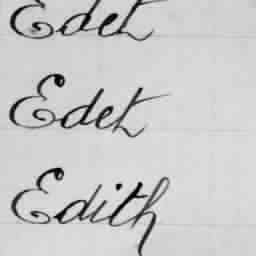 Edet
Edet
Edith